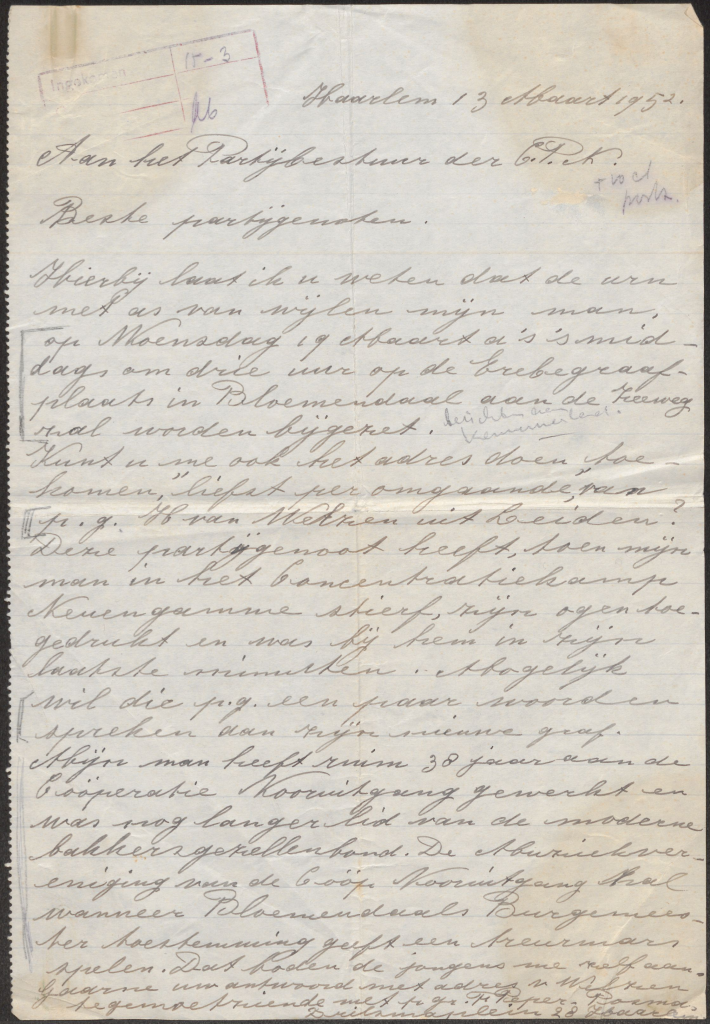 Ingekomen
15-3
Haarlem 13 Maart 1952.
Aan het Partijbestuur der C.P.N.
Beste partijgenoten.
Hierbij laat ik u weten dat de urn
met as van wijlen mijn man,
op Woensdag 19 Maart a's 's mid-
dags om drie uur op de Erebegraaf-
plaats in Bloemendaal aan de Zeeweg
zal worden bijgezet.
Kunt u me ook het adres doen toe-
komen, "liefst per omgaande", van
p.g. H van Welzien uit Leiden?
Deze partijgenoot heeft, toen mijn
man in het Concentratiekamp
Neuengamme stierf, zijn ogen toe-
gedrukt en was bij hem in zijn
laatste minuten. Mogelijk
wil die p.g. een paar woorden
spreken aan zijn nieuwe graf.
Mijn man heeft ruim 38 jaar aan de
Coöperatie Vooruitgang gewerkt en
was nog langer lid van de moderne
bakkersgezellenbond. De Muziekver-
eniging van de Coöp Vooruitgang zal
wanneer Bloemendaals Burgemees-
ter toestemming geeft een treurmars
spelen. Dat boden de jongens me zelf aan.
Gaarne uw antwoord met adres v Welzien
tegemoetziende met p.gr. F. Peper-Bosma
28 Haarlem